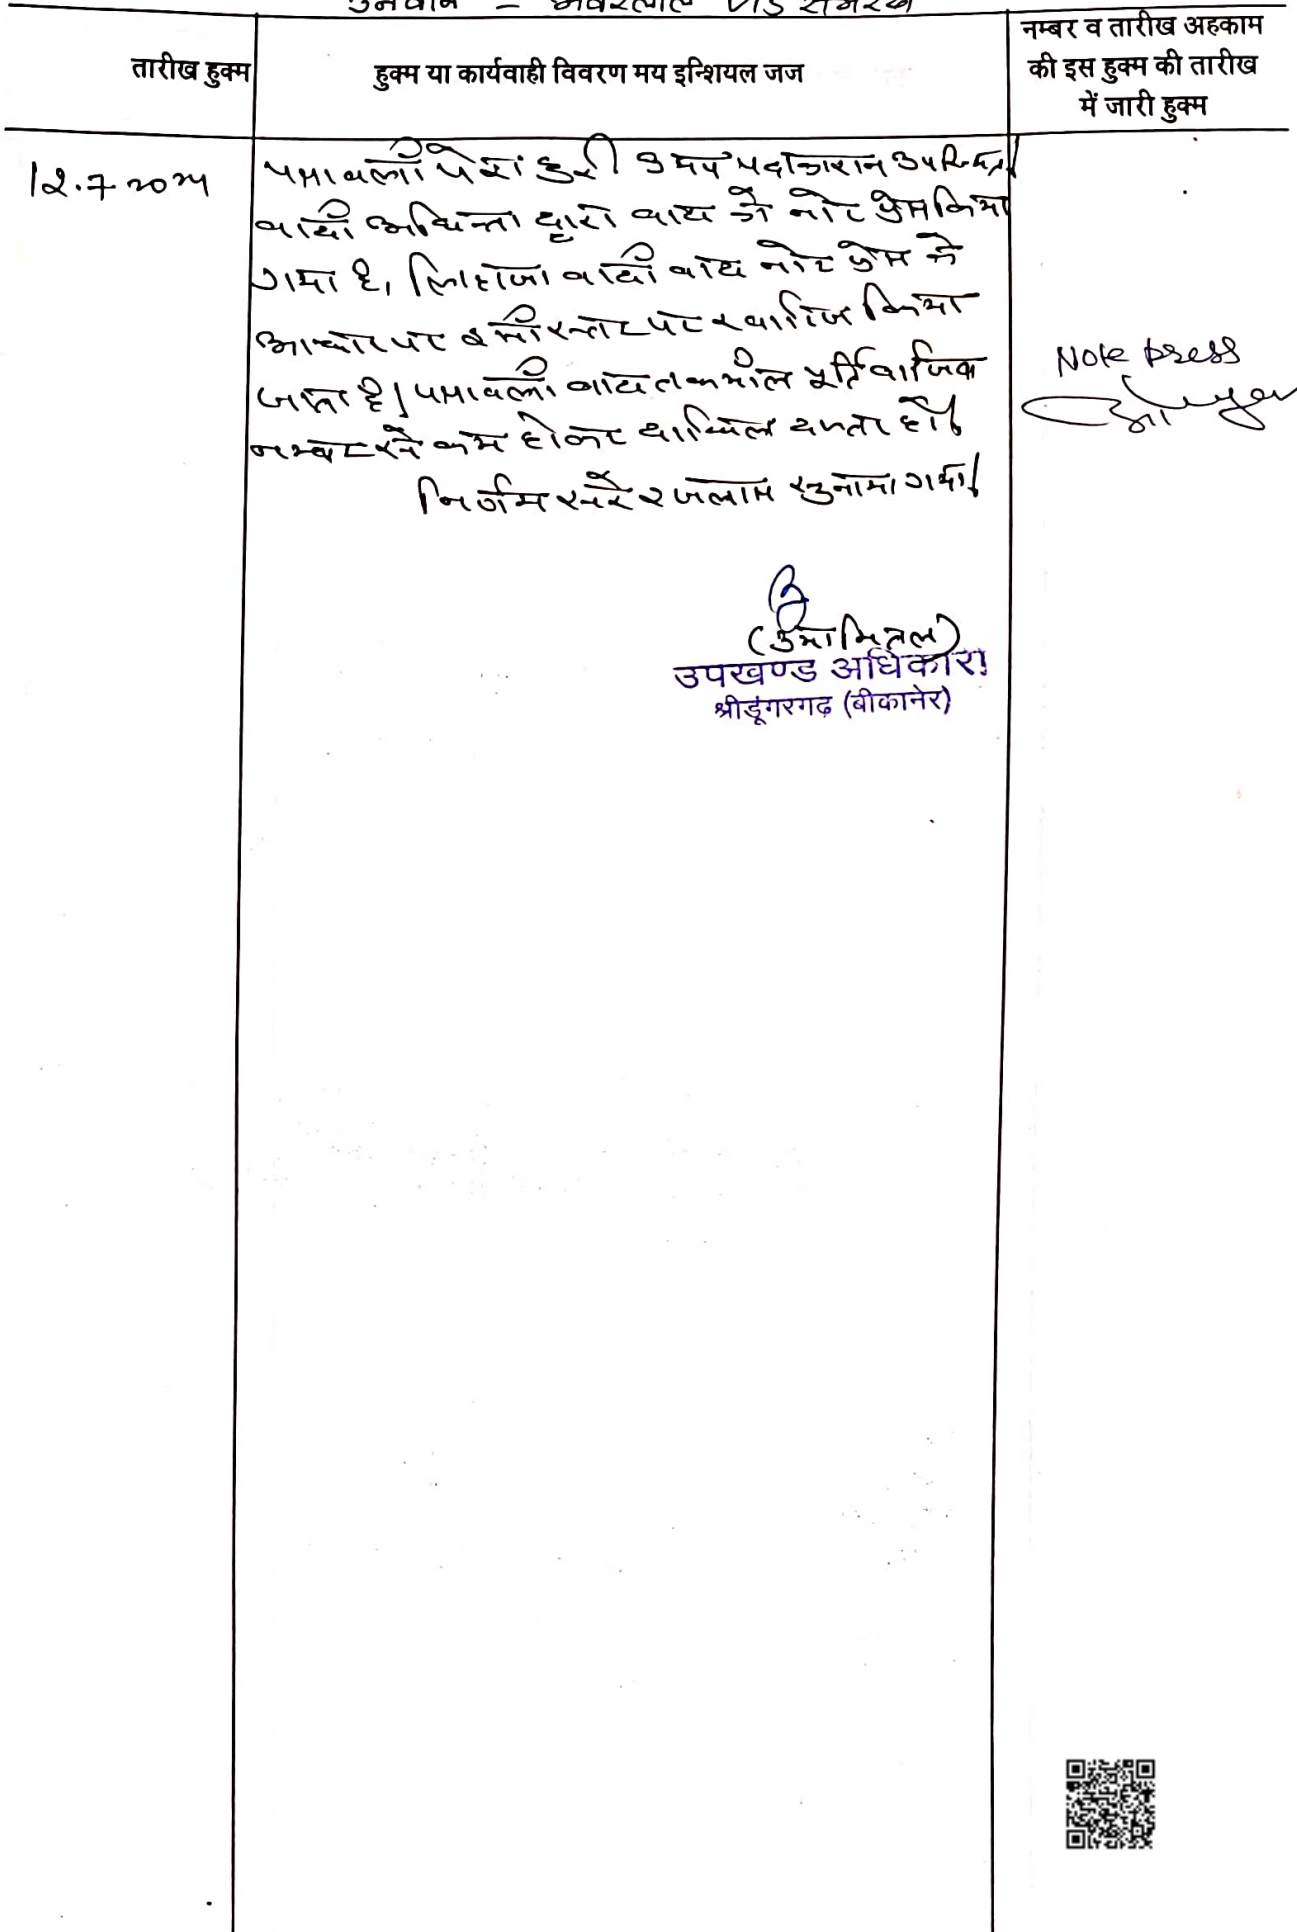 उनवान - भंवरलाल V/S समरथ
तारीख हुक्म
हुक्म या कार्यवाही विवरण मय इन्शियल जज
नम्बर व तारीख अहकाम
की इस हुक्म की तारीख
में जारी हुक्म
12.7.2024
पत्रावली पेश हुई। उभय पक्षकारान उपस्थित।
वादी अधिवक्ता द्वारा वाद को नोट प्रेस किया
गया है, लिहाजा वादी वाद नोट प्रेस के
आधार पर इसी स्तर पर खारिज किया
जाता है। पत्रावली बाद तकमील पूर्ति वाजिब
नम्बर से कम होकर दाखिल दफ्तर हो।
निर्णय सरे इजलास सुनाया गया।
Note press
(उमा मित्तल)
उपखण्ड अधिकारी
श्रीडूंगरगढ़ (बीकानेर)